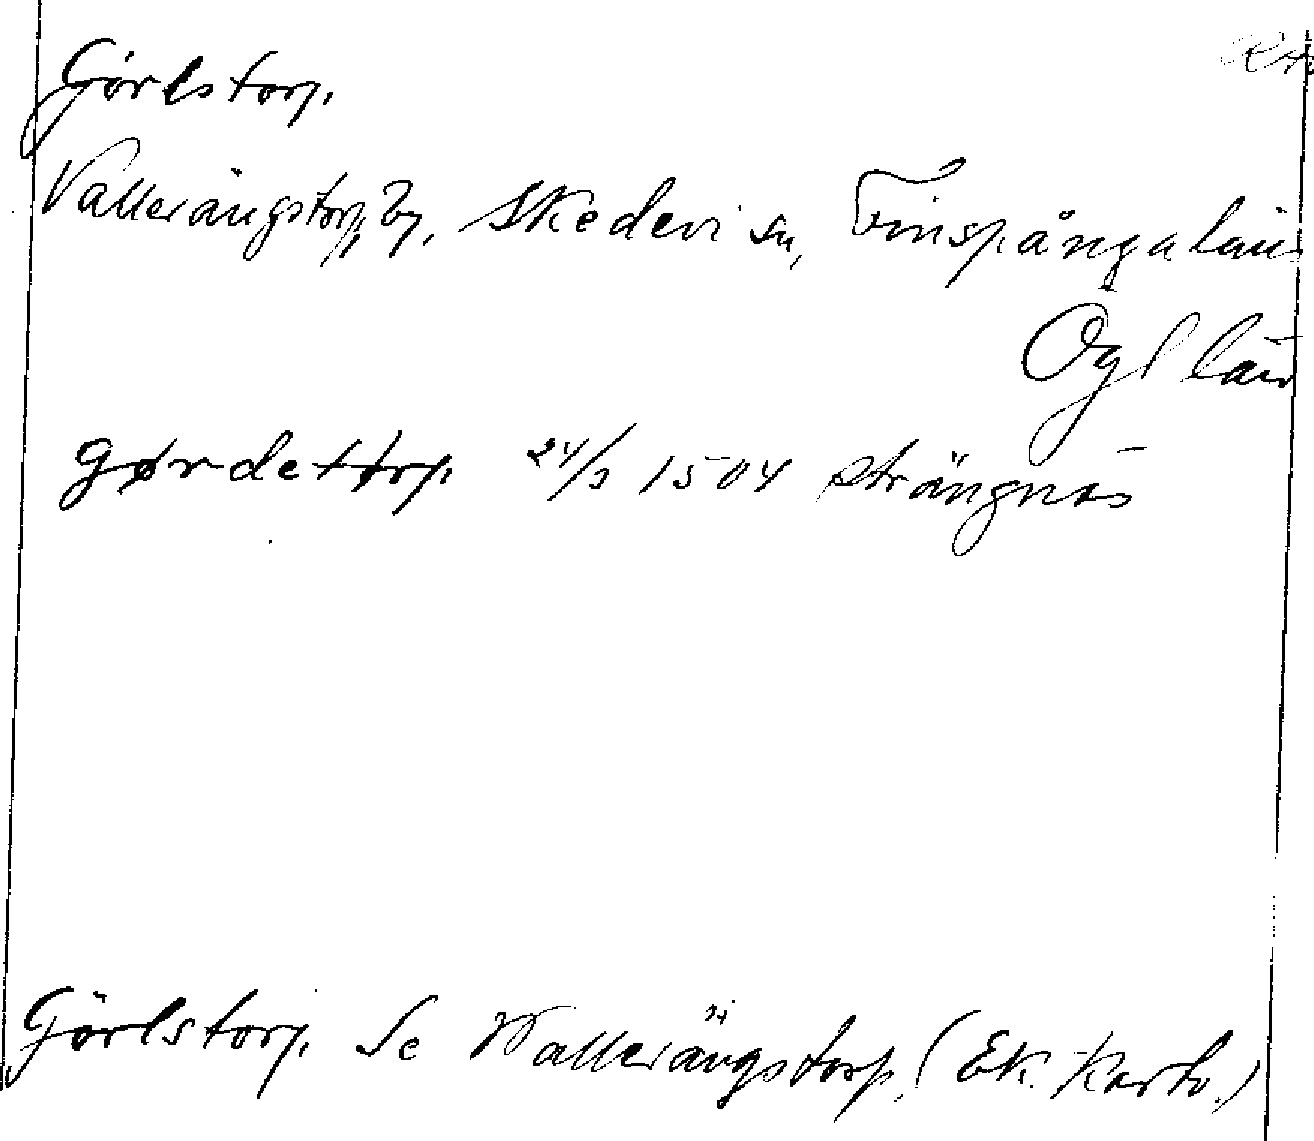 Görlstorp.
Vallerängstorp, By, Skedevi sn, Finspånga läns
Ögl län
gørdettørp 24/3 1504 Strängnäs
Görlstorp. Se Vallerängstorp. (Ek. Karto.)